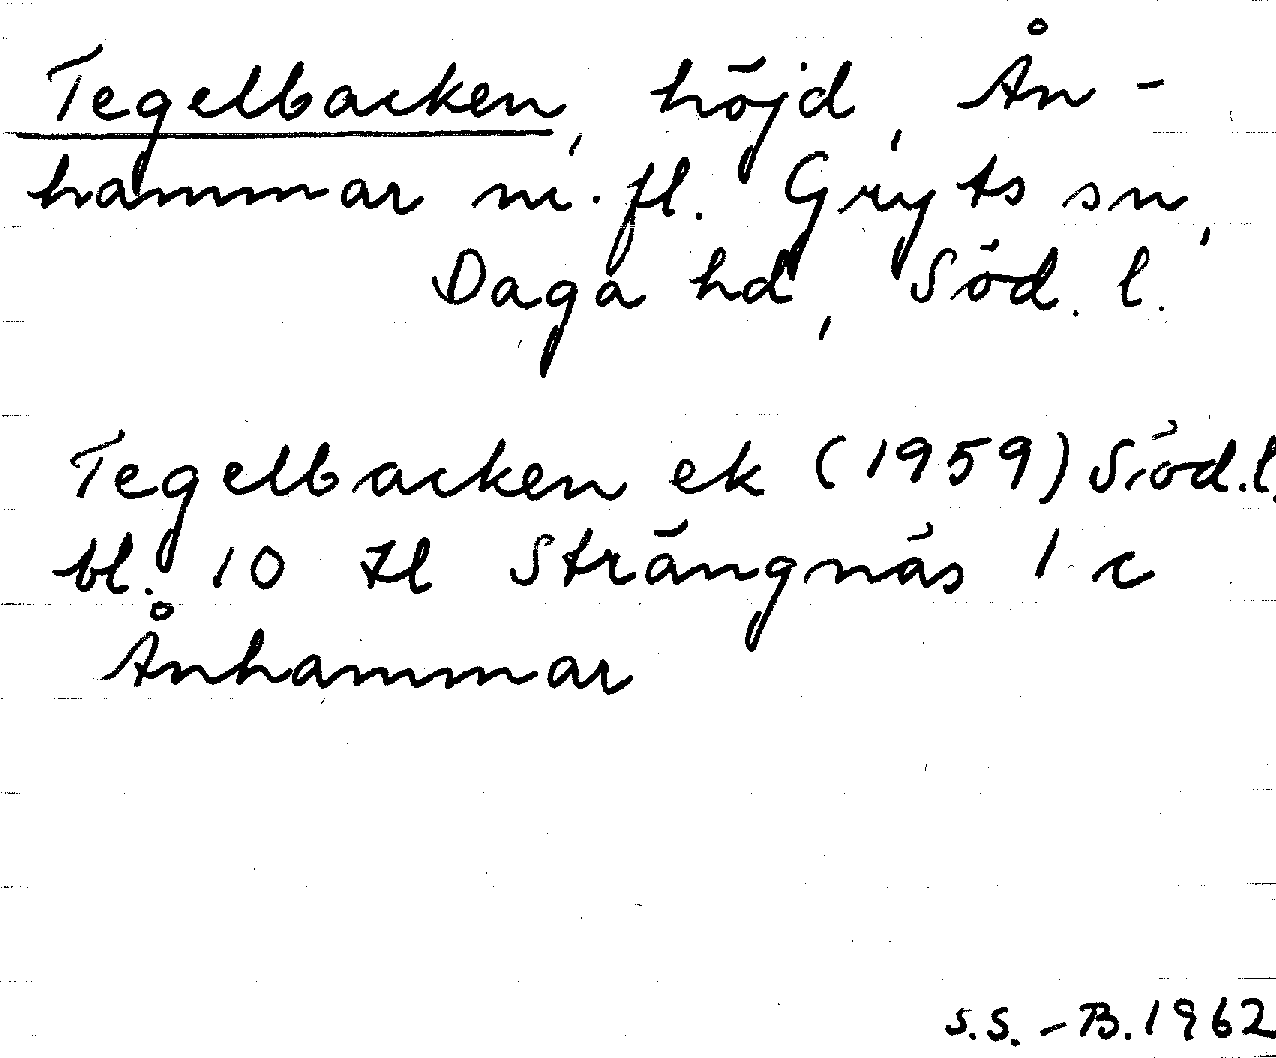 Tegelbacken, höjd, Ån-
hammar m. fl. Gryts sn,
Daga hd, Söd. l.
Tegelbacken ek (1959) Söd. l.
bl. 10 Strängnäs 1 c
Ånhammar
S.S.-B. 1962